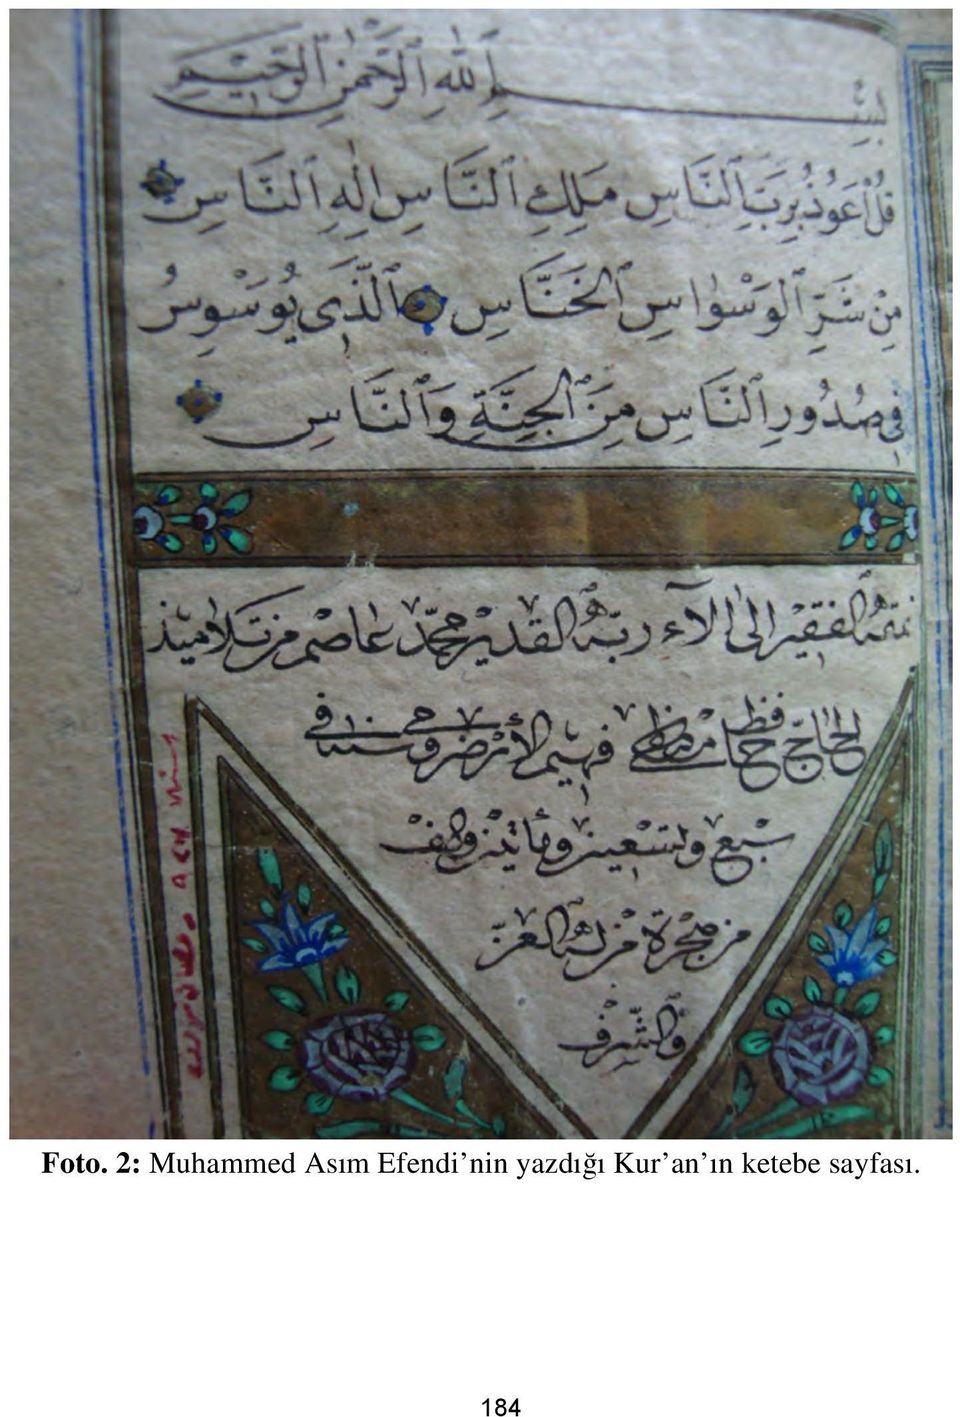 بِسْمِ اللّٰهِ الرَّحْمٰنِ الرَّحِيمِ
قُلْ أَعُوذُ بِرَبِّ ٱلنَّاسِ مَلِكِ ٱلنَّاسِ إِلٰهِ ٱلنَّاسِ
مِنْ شَرِّ ٱلْوَسْوَاسِ ٱلْخَنَّاسِ ٱلَّذِى يُوَسْوِسُ
فِى صُدُورِ ٱلنَّاسِ مِنَ ٱلْجِنَّةِ وَٱلنَّاسِ
نمقه الفقير الى الآء ربه القدير محمد عاصم من تلاميذ
الحاج حافظ مصطفى فهيم الارضرومى سنة فى
سبع وتسعين ومأتين والف
من هجرة من له العز
والشرف
سنه
Foto. 2: Muhammed Asım Efendi’nin yazdığı Kur’an’ın ketebe sayfası.
184